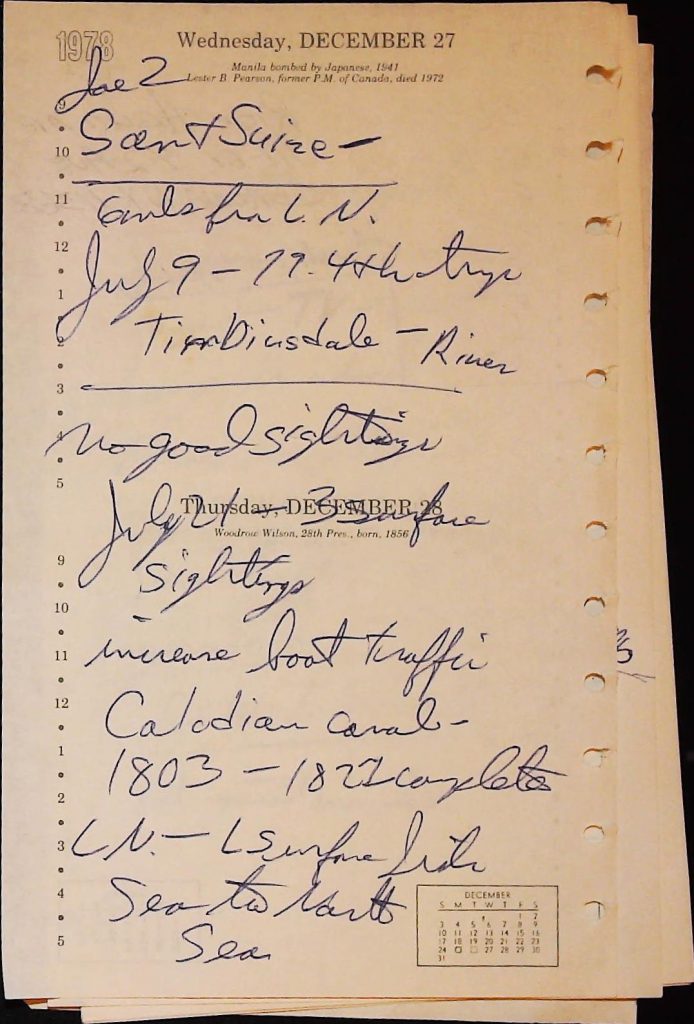 1978 Wednesday, DECEMBER 27
Manila bombed by Japanese, 1941
Lester B. Pearson, former P.M. of Canada, died 1972
9
10
11
L. N.
12
July 9 - 77. 4th trip
1
2
Tim Dinsdale - River
3
4
no good sightings
5
Thursday, DECEMBER 28
July 21 - 3 surface
Woodrow Wilson, 28th Pres., born, 1856
9
sightings
10
11
increase boat traffic
12
Calodian canal -
1
1803 - 1822 complete
2
3
L N. - surface
4
Sea to North
5
Sea
DECEMBER
S M T W T F S
1 2
3 4 5 6 7 8 9
10 11 12 13 14 15 16
17 18 19 20 21 22 23
24 27 28 29 30
31